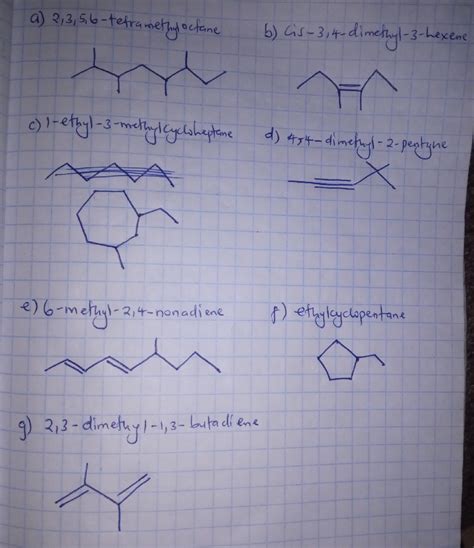 a) 2,3,5,6-tetramethyloctane
b) Cis-3,4-dimethyl-3-hexene
c) 1-ethyl-3-methylcycloheptane
d) 4,4-dimethyl-2-pentyne
e) 6-methyl-2,4-nonadiene
f) ethylcyclopentane
g) 2,3-dimethyl-1,3-butadiene